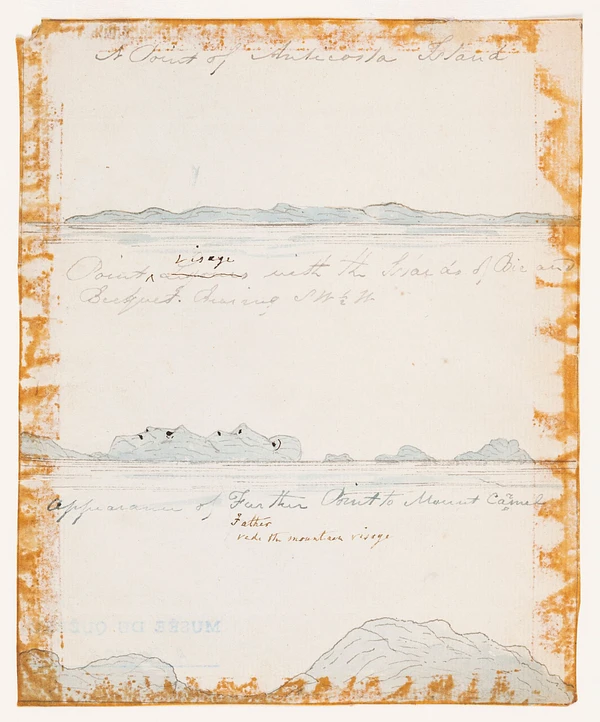 A Point of Anticosta Island
visage
Point with the Islands of Bic and
Bearing S W ½ W
Appearance of Further Point to Mount Camel
Father
vide the mountain visage
MUSÉE DU QUÉ